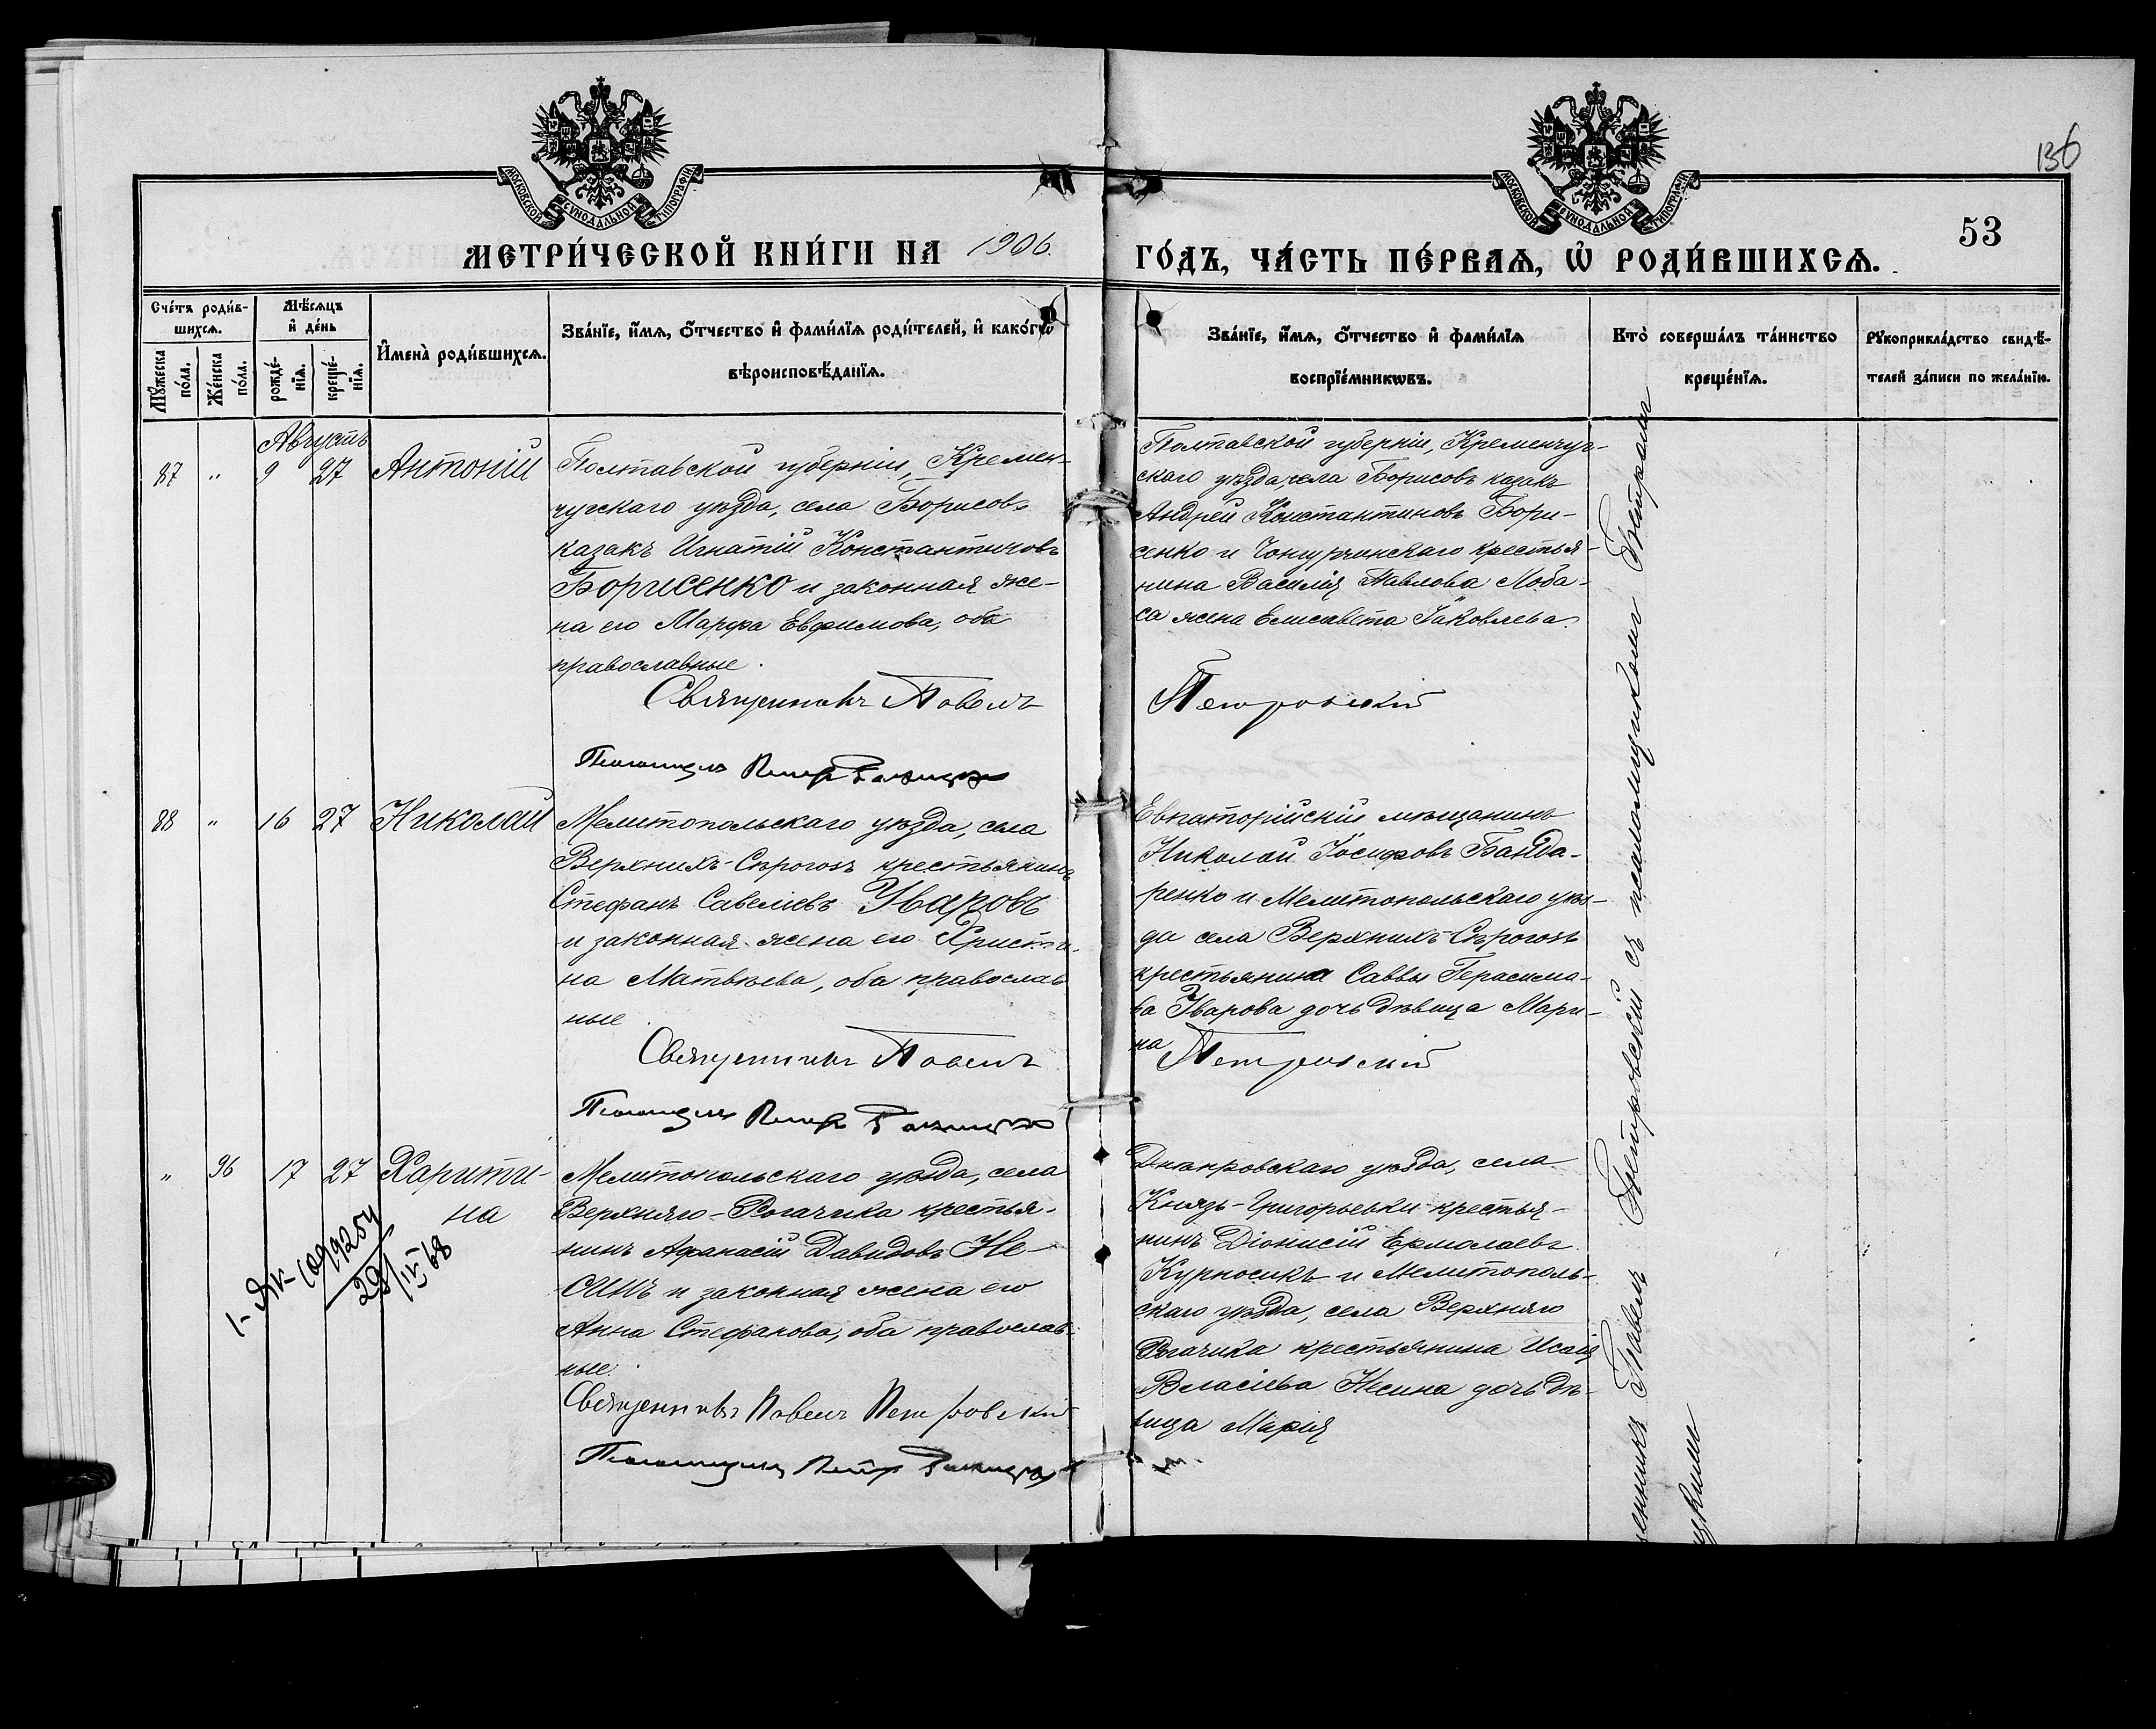 136
МОСКОВСКОЙ СѴНОДАЛЬНОЙ ТИПОГРАФІИ
МОСКОВСКОЙ СѴНОДАЛЬНОЙ ТИПОГРАФІИ
53
МЕТРИ́ЧЕСКОЙ КНИ́ГИ НА 1906. ГО́ДЪ, ЧА́СТЬ ПЕ́РВАѦ, Ѡ҆ РОДИ́ВШИХСѦ.
Сче́тъ роди́в-
шихсѧ.
Мѣ́сѧцъ
и҆ де́нь
Мꙋ́жеска
по́ла.
Же́нска
по́ла.
рожде́-
нїѧ.
креще́-
нїѧ.
И҆мена̀ роди́вшихсѧ.
Зва́нїе, и҆́мѧ, ѻ҆́тчество и҆ фами́лїѧ роди́телей, и҆ како́гѡ
вѣроисповѣ́данїѧ.
Зва́нїе, и҆́мѧ, ѻ҆́тчество и҆ фами́лїѧ
воспрїе́мникѡвъ.
Кто̀ соверша́лъ та́инство
креще́нїѧ.
Рꙋкоприкла́дство свидѣ́-
телей за́писи по жела́нїю.
Августъ
87 " 9 27 Антоній
Полтавской губерніи, Кремен-
чугскаго уѣзда, села Борисовъ
казакъ Игнатій Константиновъ
Борисенко и законная же-
на его Марфа Евфимова, оба
православные.
Священникъ Павелъ
Псаломщикъ Петръ
Полтавской губерніи, Кременчуг-
скаго уѣзда, села Борисовъ казакъ
Андрей Константиновъ Бори-
сенко и Чонгурчинскаго крестья-
нина Василія Павлова Лоба-
са жена Елисавета Іаковлева.
Петровскій
88 " 16 27 Николай
Мелитопольскаго уѣзда, села
Верхнихъ-Сѣрогозъ крестьянинъ
Стефанъ Савеліевъ Уваровъ
и законная жена его Христи-
на Матвѣева, оба православ
ные.
Священникъ Павелъ
Псаломщикъ Петръ
Евпаторійскій мѣщанинъ
Николай Іосифовъ Банда-
ренко и Мелитопольскаго уѣз-
да села Верхнихъ-Сѣрогозъ
крестьянина Саввы Герасимо-
ва Уварова дочь дѣвица Мари-
на
Петровскій
" 96 17 27 Харити-
на
Мелитопольскаго уѣзда, села
Верхняго-Рогачика крестья-
нинъ Афанасій Давидовъ Не-
синъ и законная жена его
Анна Стефанова, оба православ-
ные.
Священникъ Павелъ Петровскій
Псаломщикъ Петръ
Днѣпровскаго уѣзда, села
Князь-Григорьевки крестья-
нинъ Діонисій Ермолаевъ
Курносикъ и Мелитополь-
скаго уѣзда, села Верхняго
Рогачика крестьянина Исаія
Власіева Несина дочь дѣ-
вица Марія
Павелъ Петровскій съ псаломщикомъ Петромъ